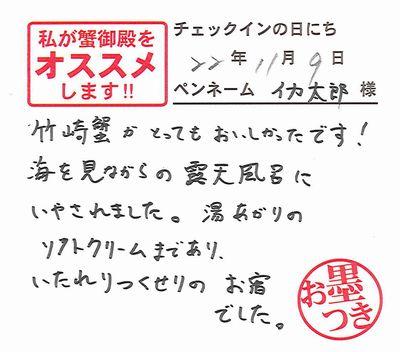 私が蟹御殿を
オススメ
します!!
チェックインの日にち
22年11月9日
ペンネーム イカ太郎 様
竹崎蟹がとってもおいしかったです!
海を見ながらの露天風呂に
いやされました。湯あがりの
ソフトクリームまであり、
いたれりつくせりのお宿
でした。
お墨つき